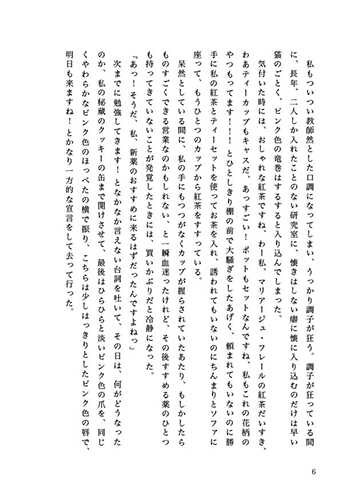 私もついつい教師然とした口調になってしまい、うっかり調子が狂う。調子が狂っている間
に、長年、二人しか入れたことのない研究室に、懐きはしない癖に懐に入り込むのだけは早い
猫のごとく、ピンク色の竜巻はするすると入り込んでしまった。
気付いた時には、おしゃれな紅茶ですね、わー私、マリアージュ・フレールの紅茶だいすき、
わあティーカップもキャスだ、あっすごい！ポットもセットなんですね、私もこれの花柄の
やつもってます！！！とひとしきり棚の前で大騒ぎをしたあげく、頼まれてもいないのに勝
手に私の紅茶とティーセットを使ってお茶を入れ、誘われてもいないのにちんまりとソファに
座って、もうひとつのカップから紅茶をすすっている。
呆然としている間に、私の手にもつつがなくカップが握らされていたあたり、もしかしたら
ものすごくできる営業なのかもしれない、と一瞬血迷ったけれど、その後すすめる薬のひとつ
も持ってきていないことが発覚したときには、買いかぶりだと冷静になった。
「あっ！そうだ、私、新薬のおすすめに来るはずだったんですよねっ」
次までに勉強してきます！となかなか言えない台詞を吐いて、その日は、何がどうなった
のか、私の秘蔵のクッキーの缶まで開けさせて、最後はひらひらと淡いピンク色の爪を、同じ
くやわらかなピンク色のほっぺたの横で振り、こちらは少しはっきりとしたピンク色の唇で、
明日も来ますね！とかなり一方的な宣言をして去って行った。
6